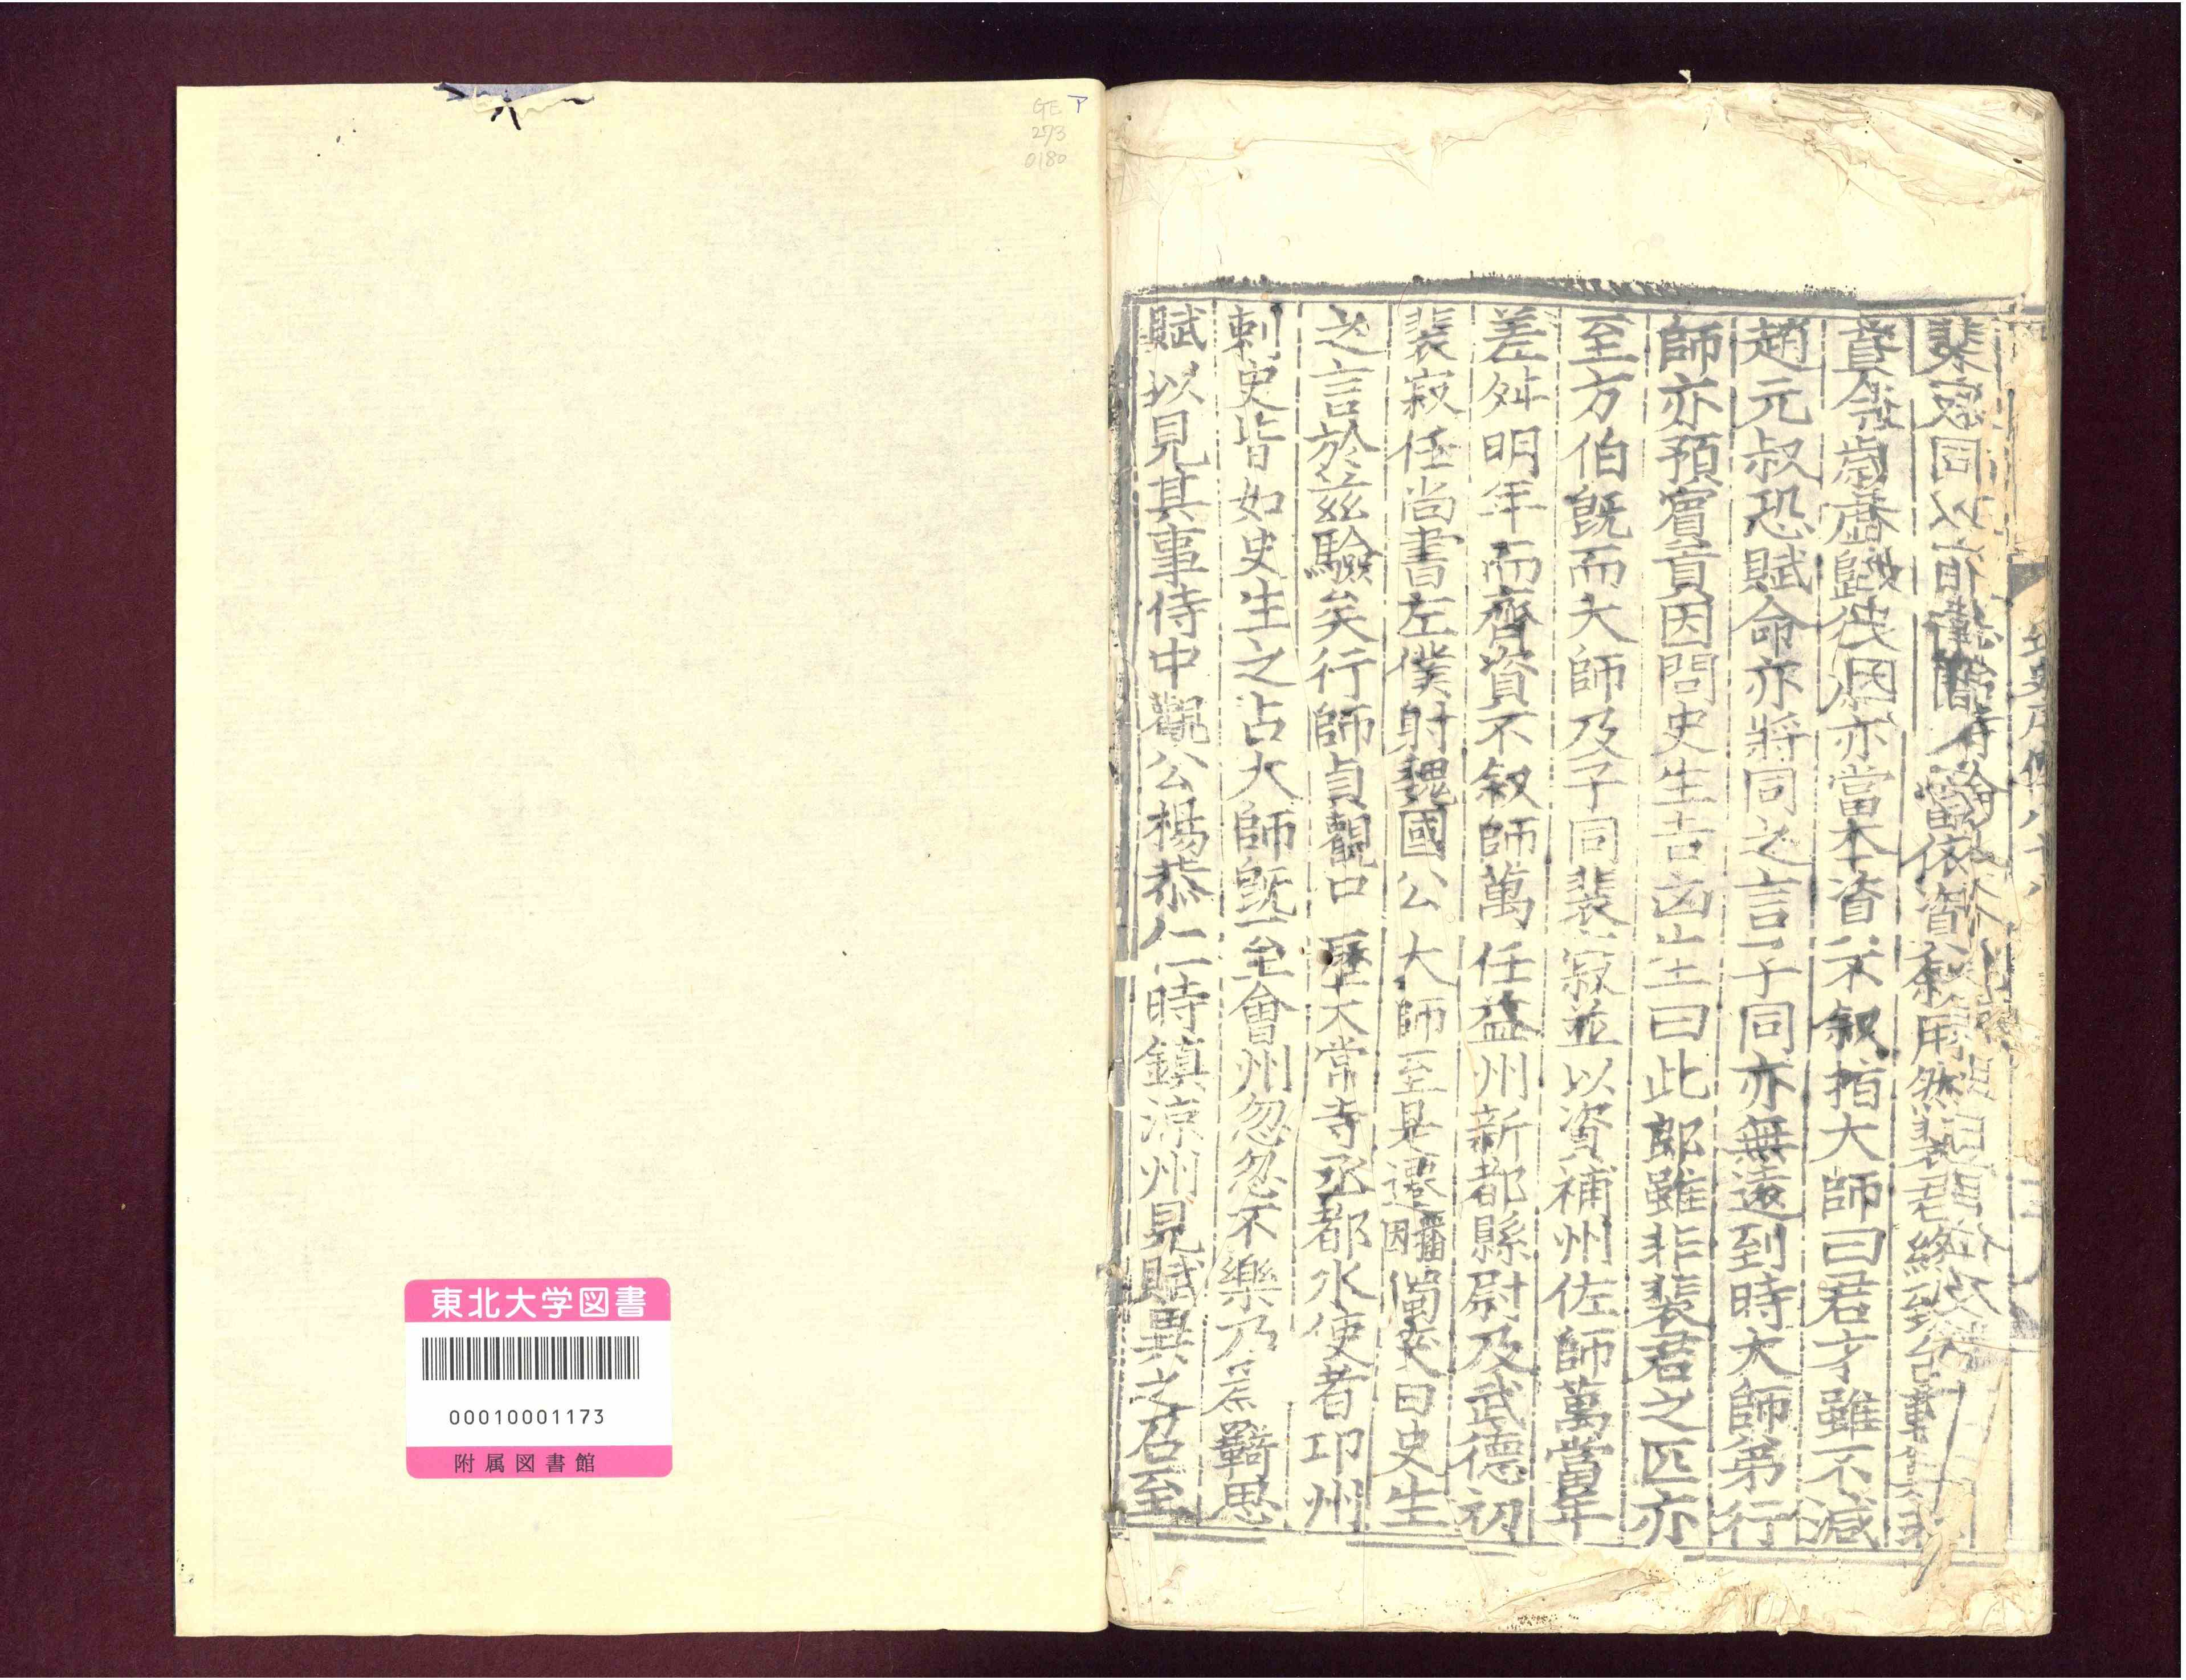 裴寂同以前
亦當不資不叙指大師曰君才雖不減
趙元叔恐賦命亦將同之言子同亦無遠到時大師弟行
師亦預賓貢因問史生吉凶生曰此郎雖非裴君之匹亦
至方伯旣而大師及子同裴寂並以資補州佐師萬當年
差舛明年而齊資不叙師萬任益州新都縣尉及武德初
裴寂任尚書左僕射魏國公大師至是遷播因獨歎曰史生
之言於茲驗矣行師貞觀中歷太常寺丞都水使者卭州
刺史皆如史生之占大師旣至會州忽忽不樂乃爲羈思
賦以見其事侍中觀公楊恭仁時鎮涼州見賦異之召至
GE
273
0180
東北大学図書
00010001173
附属図書館